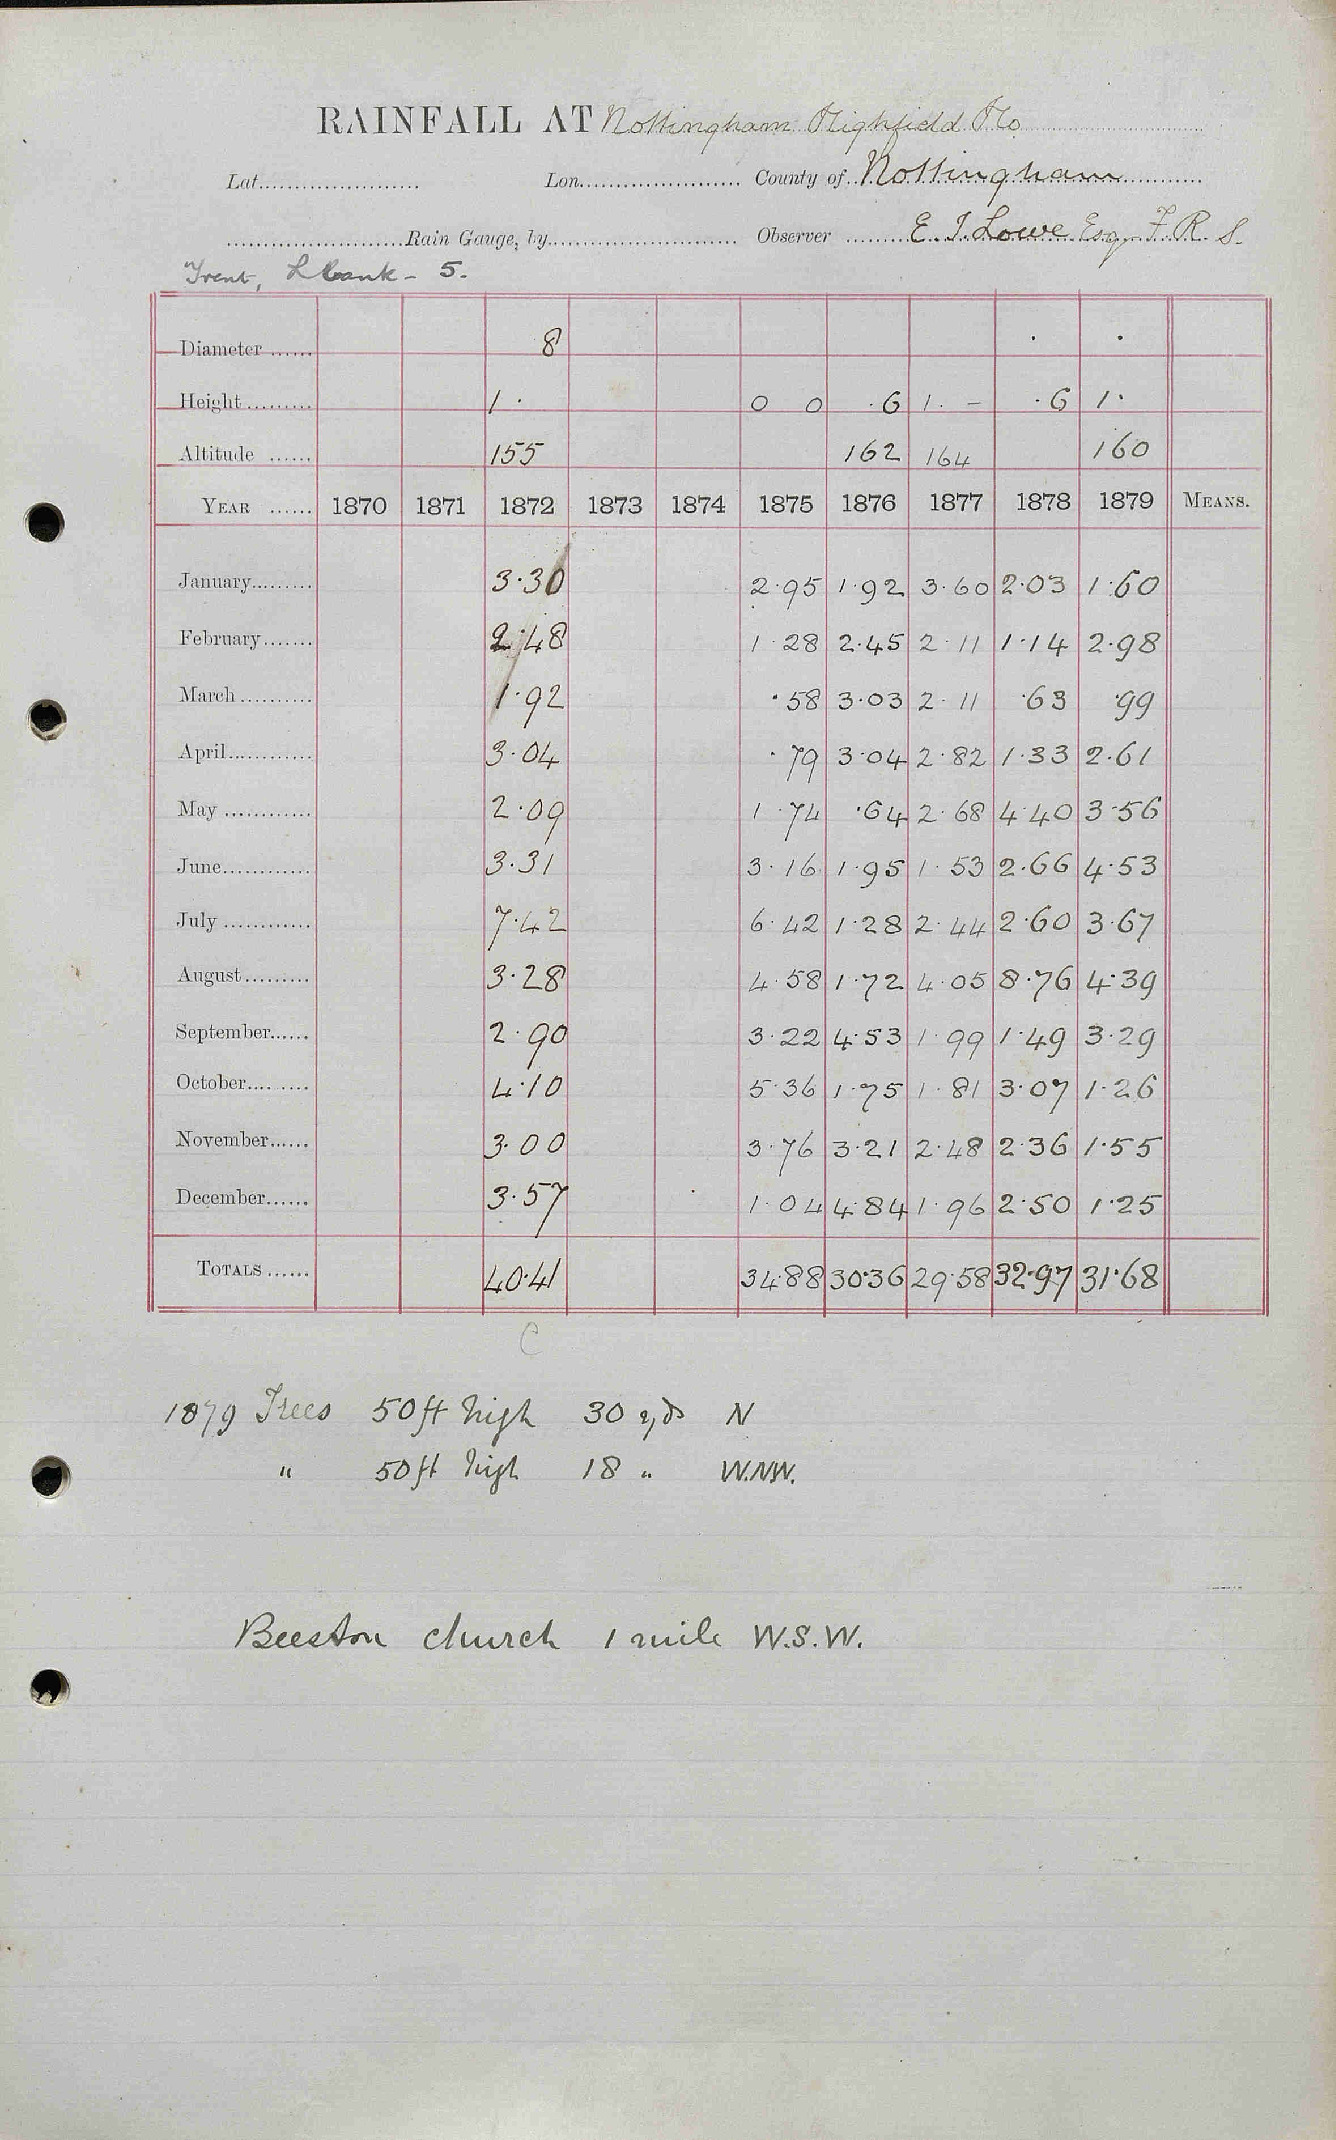 RAINFALL AT Nottingham Highfield Ho
Lat....................... Lon...................... County of Nottingham
........................Rain Gauge, by.......................... Observer E. J. Lowe Esq F. R. S.
Trent, L bank - 5.
Diameter ...... 8 · ·
Height ......... 1 · 0 0 ·6 1. - ·6 1·
Altitude ...... 155 162 164 160
YEAR ...... 1870 1871 1872 1873 1874 1875 1876 1877 1878 1879 MEANS.
January......... 3·30 2·95 1·92 3·60 2·03 1·60
February....... 2·48 1·28 2·45 2·11 1·14 2·98
March .......... 1·92 ·58 3·03 2·11 ·63 ·99
April............ 3·04 ·79 3·04 2·82 1·33 2·61
May ............ 2·09 1·74 ·64 2·68 4·40 3·56
June............. 3·31 3·16 1·95 1·53 2·66 4·53
July ............ 7·42 6·42 1·28 2·44 2·60 3·67
August ......... 3·28 4·58 1·72 4·05 8·76 4·39
September...... 2·90 3·22 4·53 1·99 1·49 3·29
October......... 4·10 5·36 1·75 1·81 3·07 1·26
November...... 3·00 3·76 3·21 2·48 2·36 1·55
December...... 3·57 1·04 4·84 1·96 2·50 1·25
TOTALS ...... 40·41 34·88 30·36 29·58 32·97 31·68
C
1879 Trees 50ft high 30 yds N
" 50ft high 18 " W.NW.
Beeston church 1 mile W.S.W.